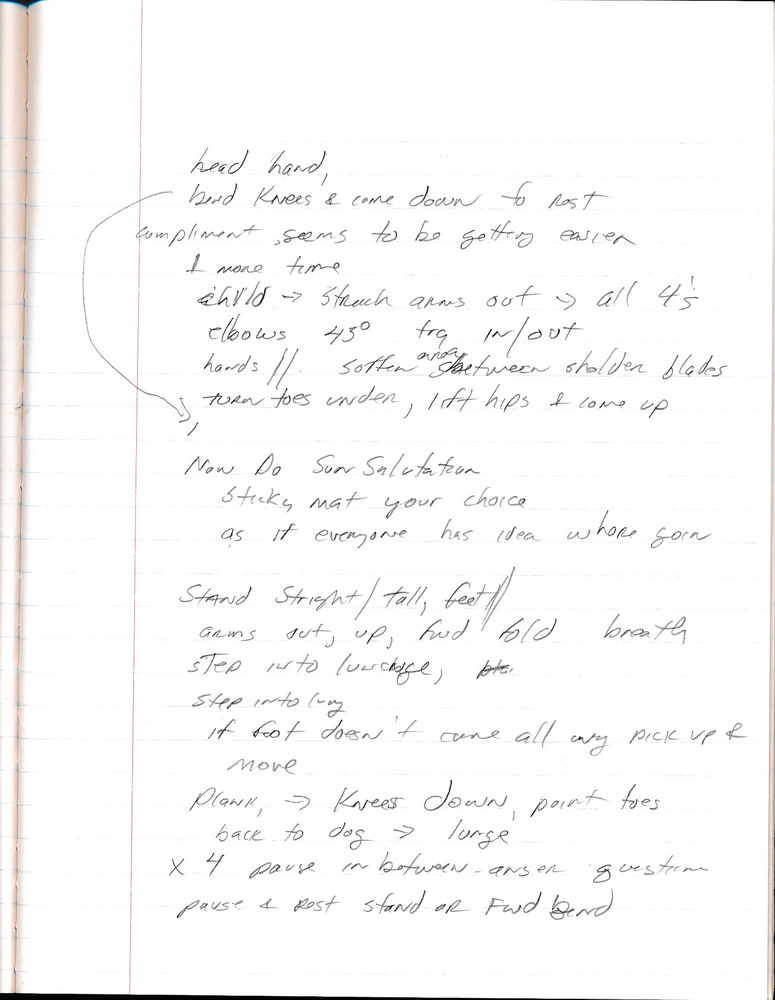 head hand,
bend Knees & come down to rest
compliment, seems to be getting easier
1 more time
child → Strech arms out → all 4's
elbows 45° trq in/out
hands //. soften area between sholder blades
turn toes under, lift hips & come up
Now Do Sun Salutation
Sticky mat your choice
as if everyone has idea where goin
Stand Stright/tall, feet //
arms out, up, fwd fold breath
step into lunge,
step into lung
if foot doesn't come all way pick up &
move
Plank, → Knees down, point toes
back to dog → lunge
x 4 pause in between - anser question
pause & rest stand or Fwd Bend